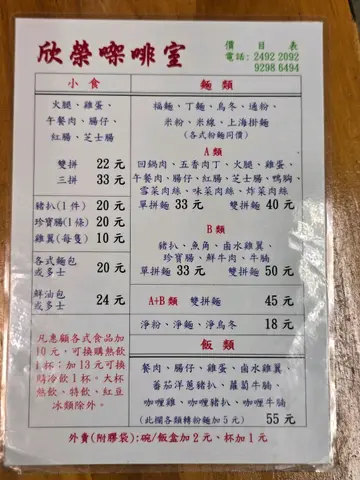 欣榮㗎啡室
價目表
電話: 2492 2092
9298 6494
小食
火腿、雞蛋、
午餐肉、腸仔、
紅腸、芝士腸
雙拼 22 元
三拼 33 元
豬扒(1件) 20 元
珍寶腸(1條) 20 元
雞翼(每隻) 10 元
各式麵包
或多士 20 元
鮮油包
或多士 24 元
凡惠顧各式食品加
10元,可換購熱飲
1杯;加13元可換
購冷飲1杯。大杯
熱飲、特飲、紅豆
冰類除外。
麵類
福麵、丁麵、烏冬、通粉、
米粉、米線、上海掛麵
(各式粉麵同價)
A類
回鍋肉、五香肉丁、火腿、雞蛋、
午餐肉、腸仔、紅腸、芝士腸、鴨胸、
雪菜肉絲、味菜肉絲、炸菜肉絲
單拼麵 33 元 雙拼麵 40 元
B類
豬扒、魚角、鹵水雞翼、
珍寶腸、鮮牛肉、牛腩
單拼麵 33 元 雙拼麵 50 元
A+B類 雙拼麵 45 元
淨粉、淨麵、淨烏冬 18 元
飯類
餐肉、腸仔、雞蛋、鹵水雞翼、
蕃茄洋蔥豬扒、蘿蔔牛腩、
咖喱雞、咖喱豬扒、咖喱牛腩
(此欄各類轉粉麵加5元) 55 元
外賣(附膠袋):碗/飯盒加2元、杯加1元